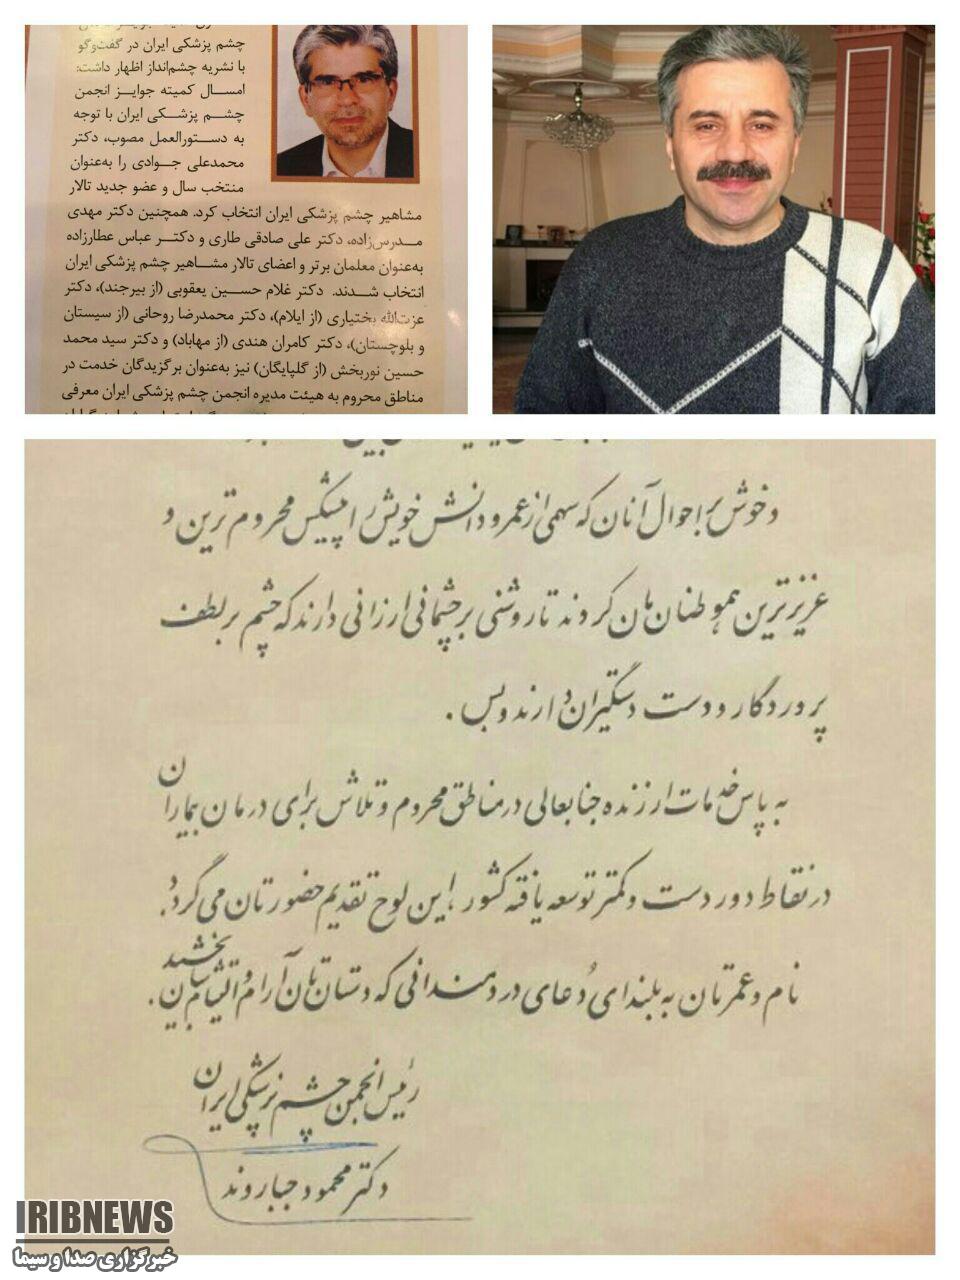 چشم پزشکی ایران در گفت‌وگو
با نشریه چشم‌انداز اظهار داشت:
امسال کمیته جوایز انجمن
چشم پزشکی ایران با توجه
به دستورالعمل مصوب، دکتر
محمدعلی جوادی را به‌عنوان
منتخب سال و عضو جدید تالار
مشاهیر چشم پزشکی ایران انتخاب کرد. همچنین دکتر مهدی
مدرس‌زاده، دکتر علی صادقی طاری و دکتر عباس عطارزاده
به‌عنوان معلمان برتر و اعضای تالار مشاهیر چشم پزشکی ایران
انتخاب شدند. دکتر غلام حسین یعقوبی (از بیرجند)، دکتر
عزت‌الله بختیاری (از ایلام)، دکتر محمدرضا روحانی (از سیستان
و بلوچستان)، دکتر کامران هندی (از مهاباد) و دکتر سید محمد
حسین نوربخش (از گلپایگان) نیز به‌عنوان برگزیدگان خدمت در
مناطق محروم به هیئت مدیره انجمن چشم پزشکی ایران معرفی
و خوش بر احوال آنان که سهمی از عمر و دانش خویش را پیشکش محروم ترین و
عزیزترین هموطنان مان کردند تا روشنی بر چشمانی ارزانی دارند که چشم بر لطف
پروردگار و دست دستگیران دارند و بس.
به پاس خدمات ارزنده جنابعالی در مناطق محروم و تلاش برای درمان بیماران
در نقاط دوردست و کمتر توسعه یافته کشور، این لوح تقدیم حضورتان می گردد.
نام و عمرتان به بلندای دُعای دردمندانی که دستان تان آرام و التیام شان بخشید.
رئیس انجمن چشم پزشکی ایران
دکتر محمود جباروند
IRIBNEWS
خبرگزاری صدا و سیما